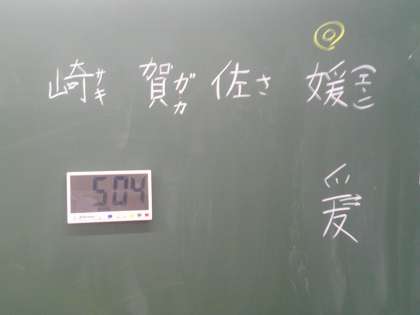 媛(エン)
佐さ
賀ガカ
崎サキ
爰
504